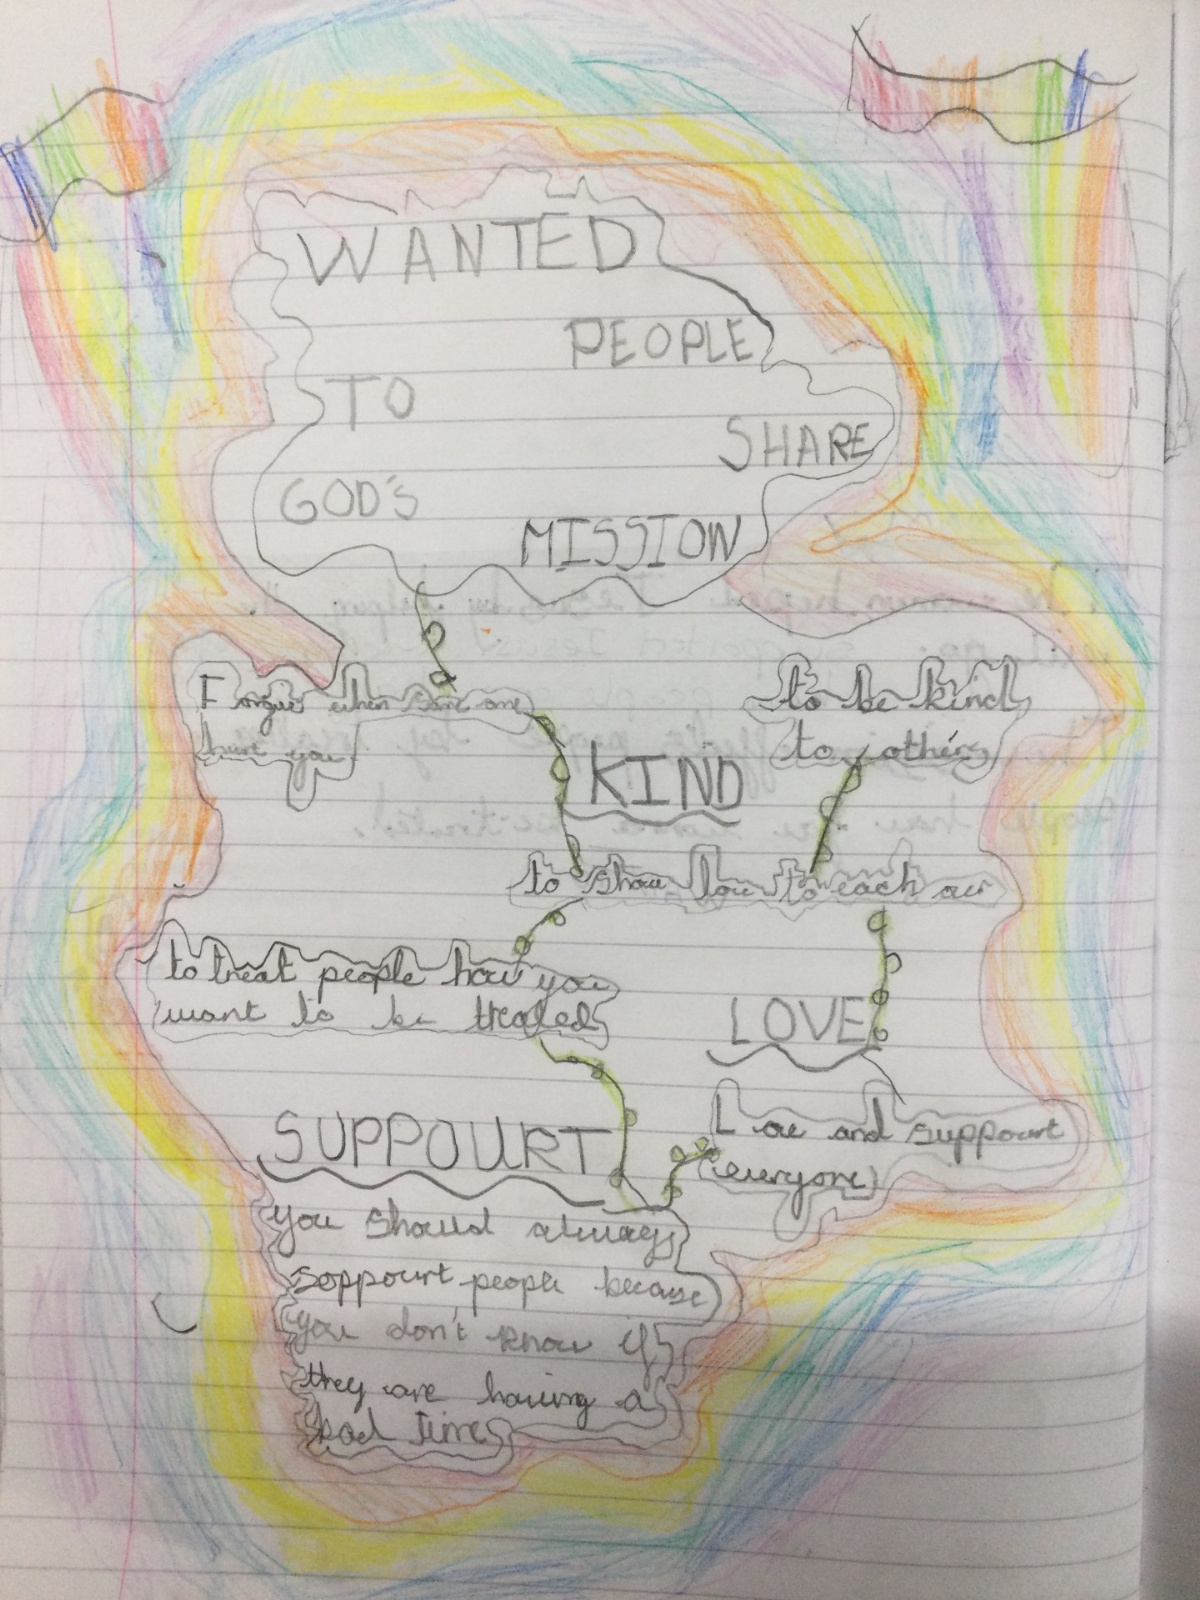 WANTED
PEOPLE
TO
SHARE
GOD'S
MISSION
Forgive when some one
hurt you
to be kind
to others
KIND
to show love to each
to treat people how you
want to be treated
LOVE
Love and suppourt
everyone
SUPPOURT
you should always
soppourt people because
you don't know if
they are having a
bad time